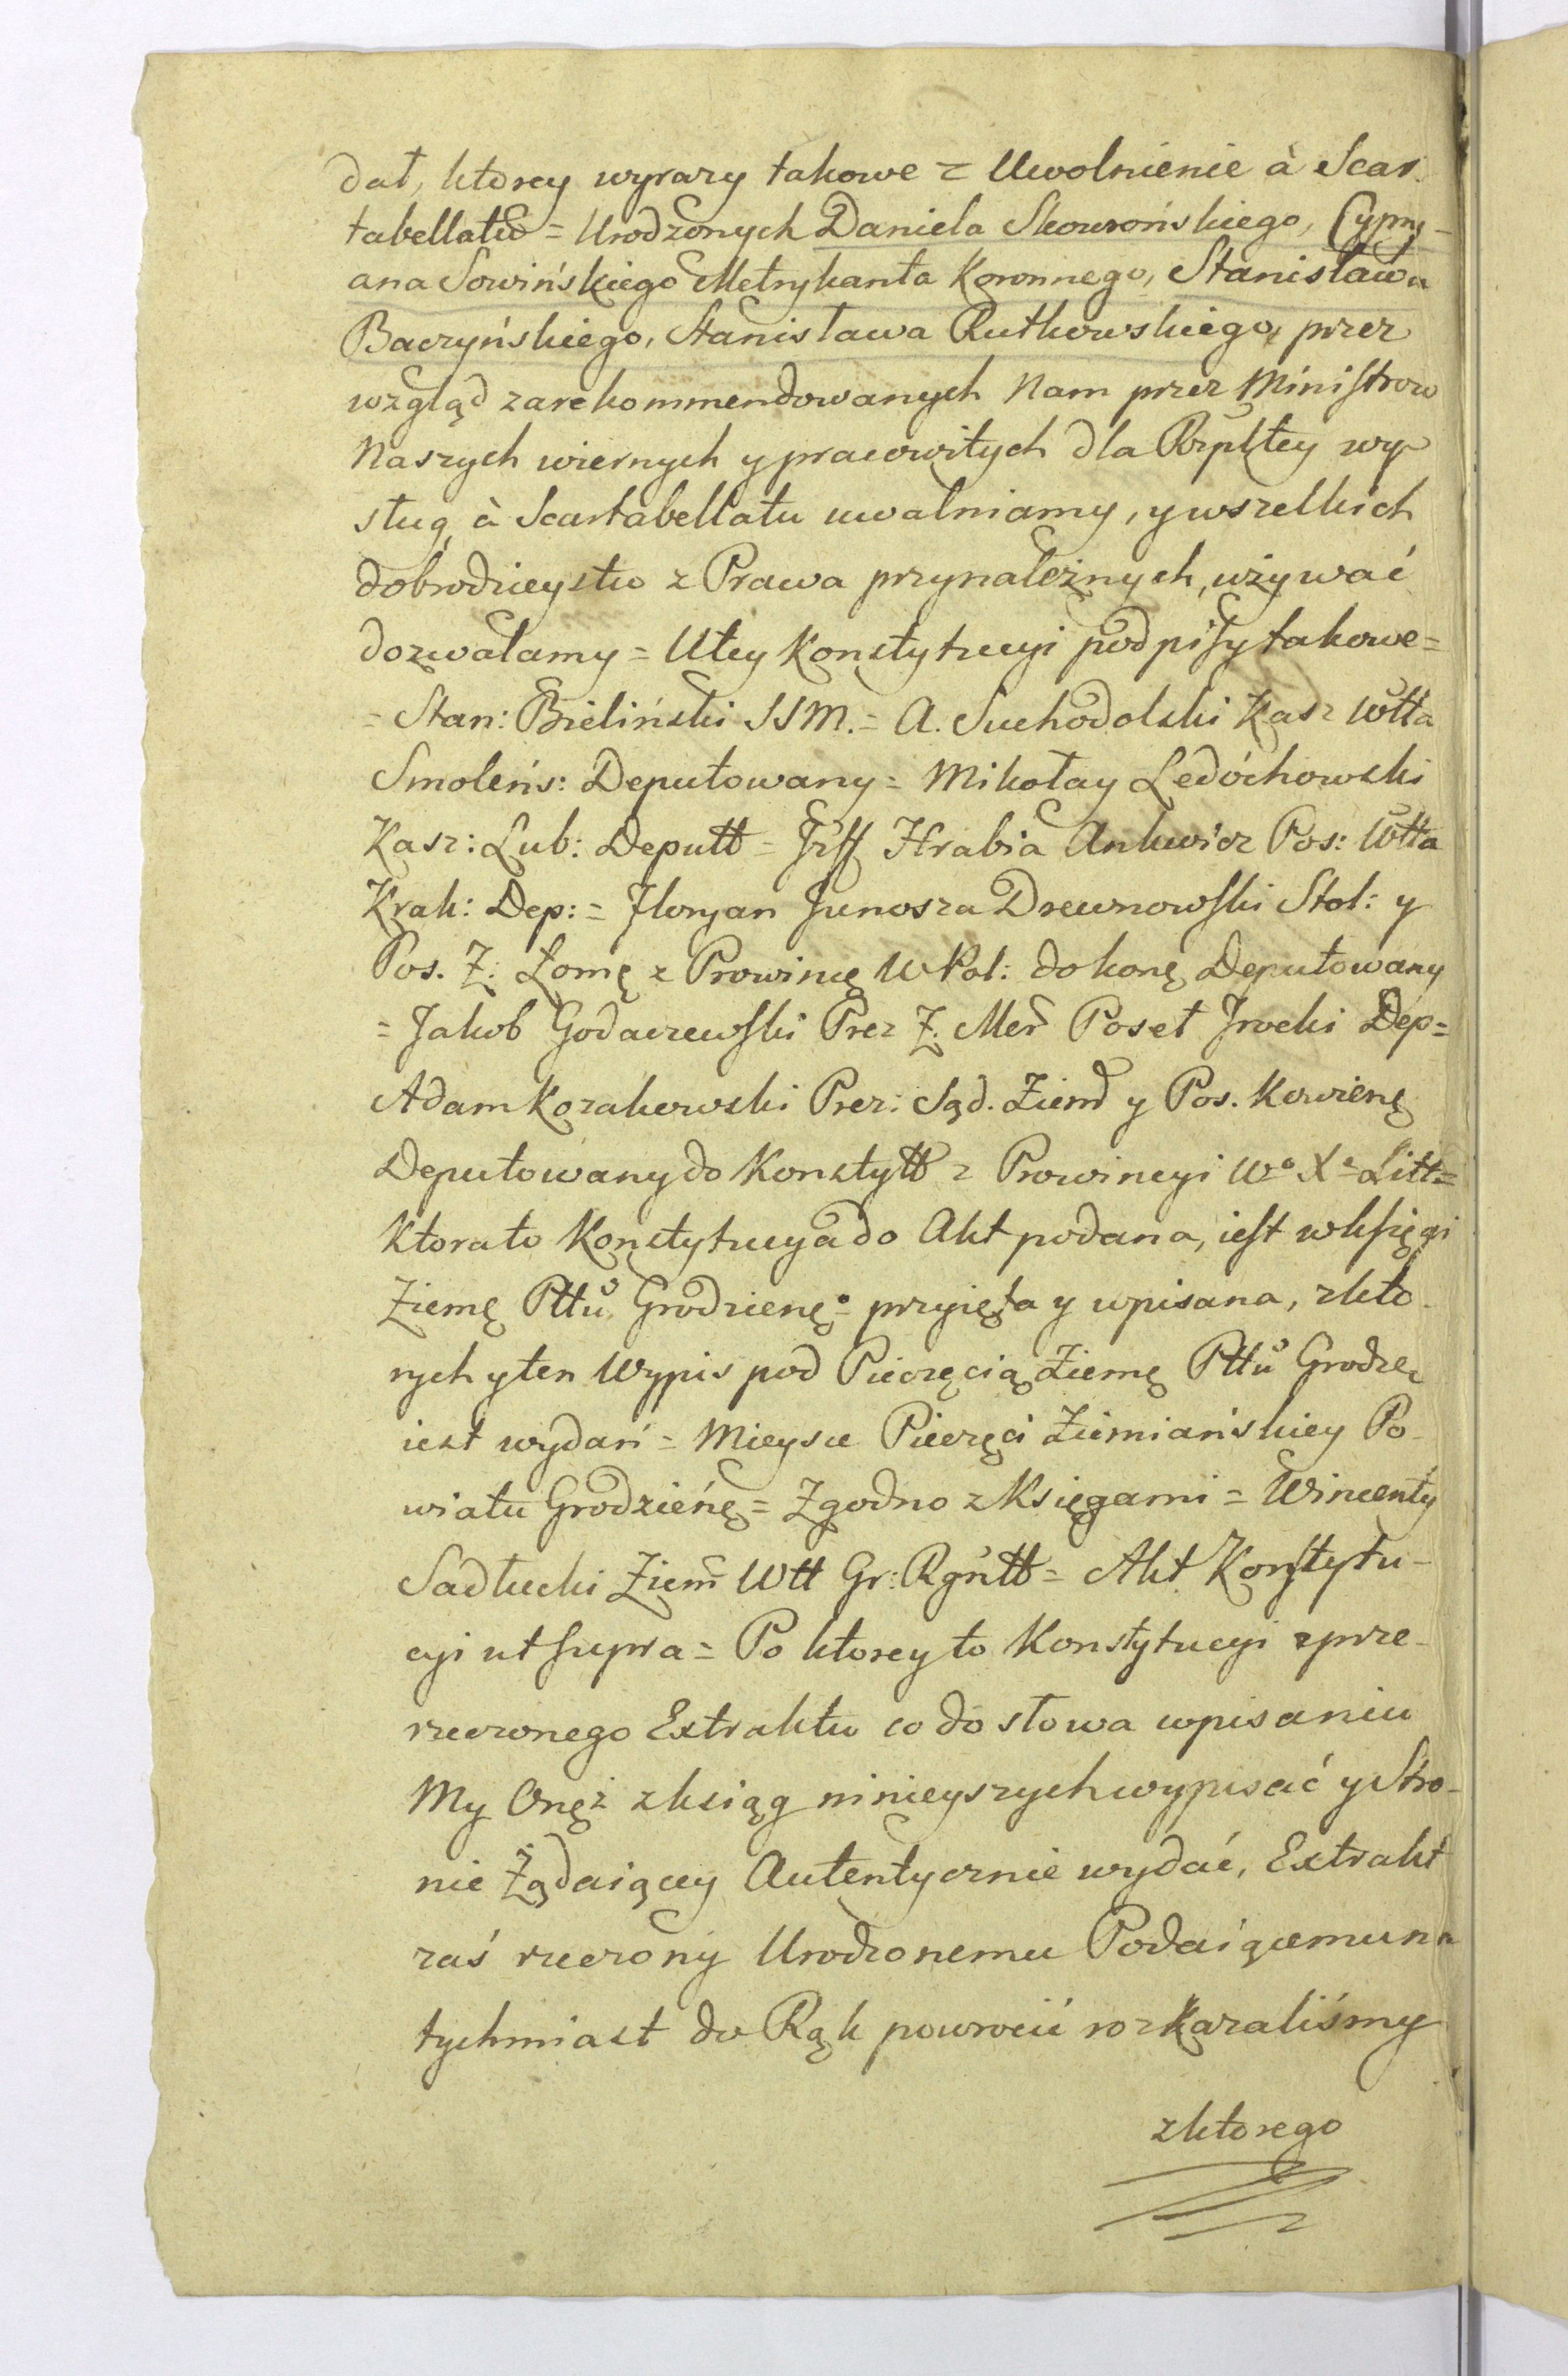 dał, ktorey wyrazy takowe = Uwolnienie à Scar-
tabellatu = Urodzonych Daniela Skowrońskiego, Cypry-
ana Sowińskiego Metrykanta Koronnego, Stanisława
Baczyńskiego, Stanisława Rutkowskiego, przez
wzgląd zarekommendowanych Nam przez Ministrow
Naszych wiernych y pracowitych dla Rzpltey wy-
sług, à Scartabellatu uwalniamy, y wszelkich
dobrodzieystw z Prawa przynależnych, używać
dozwalamy = U tey Konstytucyi podpisy takowe =
= Stan: Bieliński SSM. = A. Suchodolski Kasz Wtta
Smoleńs: Deputowany = Mikołay Ledóchowski
Kasz: Lub: Deputt = Jzff Hrabia Ankwicz Pos: Wtta
Krak: Dep: = Floryan Junosza Drewnowski Stol: y
Pos. Z. Łomę z Prowincę W Pol: do konę Deputowany
= Jakob Godaczewski Prez Z. Mer Poseł Trocki Dep =
Adam Kozakowski Prez: Sąd. Ziem y Pos. Kowienę
Deputowany do Konstytt z Prowincyi Wo Xa Litt =
Ktora to Konstytucya do Akt podana, iest w Księgi
Ziemę Pttu Grodzienę: przyięta y wpisana, z kto-
rych y ten Wypis pod Pieczęcią Ziemę Pttu Grodzę
iest wydań = Mieysce Pieczęci Ziemiańskiey Po-
wiatu Grodzieńę = Zgodno z Księgami = Wincenty
Sadłucki Ziem Wtt Gr: Rgntt = Akt Konstytu-
cyi ut supra = Po ktorey to Konstytucyi z prze-
rzeczonego Extraktu co do słowa wpisaniu
My Onęż z ksiąg ninieyszych wypisać y Stro-
nie Żądaiącey Autentycznie wydać, Extrakt
zaś rzeczony Urodzonemu Podaiącemu na
tychmiast do Rąk powrocić rozkazaliśmy
z ktorego